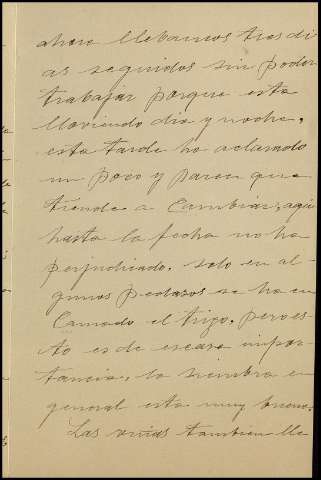 ahora llebamos tres di
as seguidos sin poder
trabajar porque esta
lloviendo dia y noche,
esta tarde ha aclarado
un poco y parece que
tiende a Cambiar, aqui
hasta la fecha no ha
perjudicado, solo en al-
gunos pedazos se ha en
Camado el trigo, pero es-
to es de escasa impor-
tancia, la siembra en
general esta muy buena.
Las viñas tambien lle